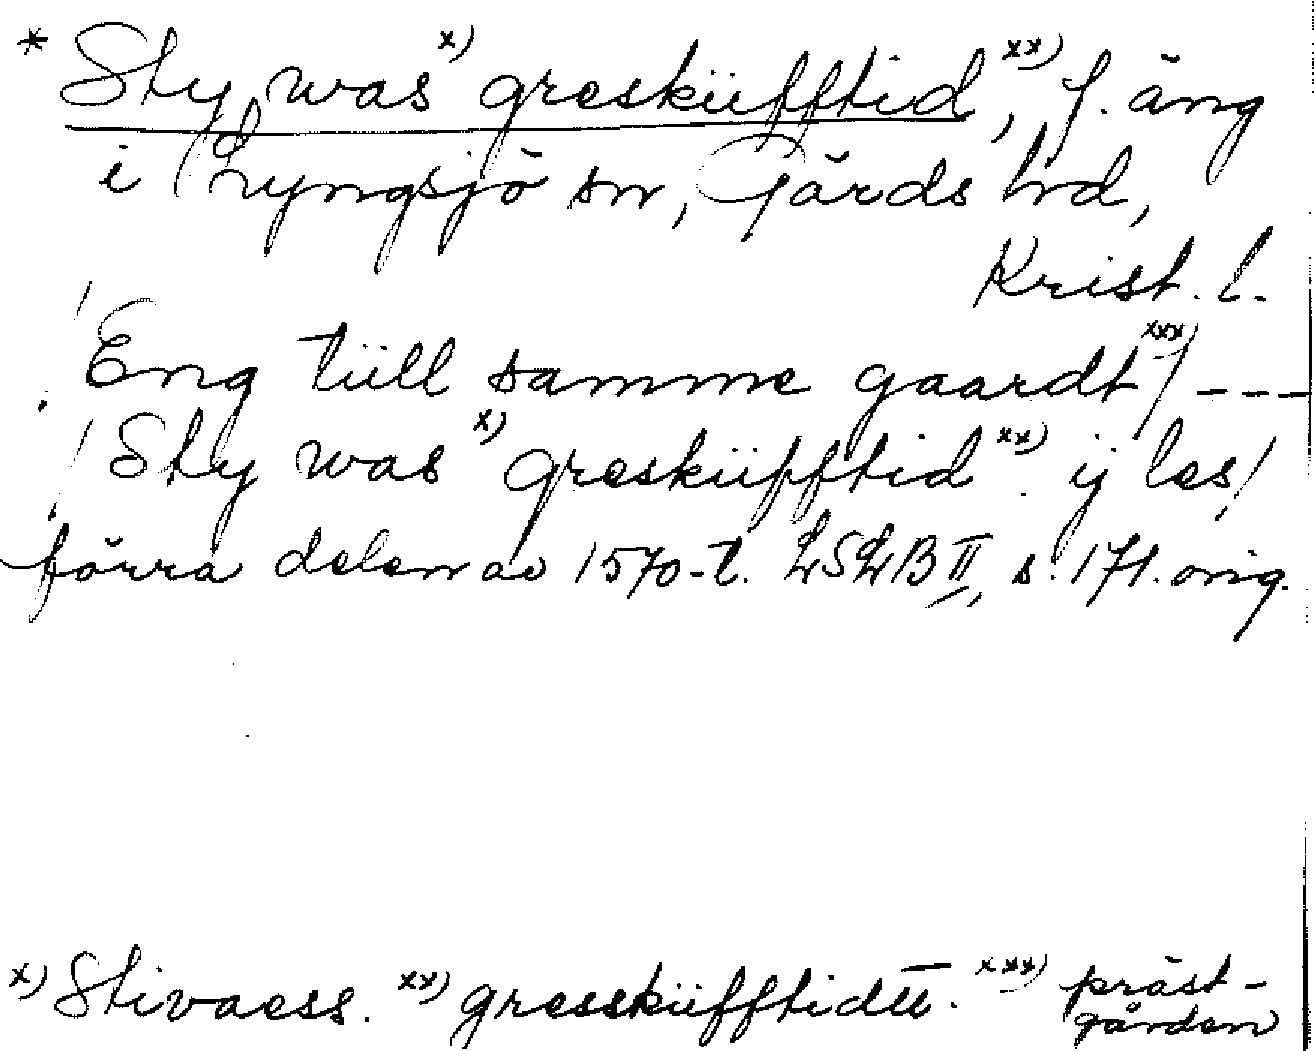 * Sty was x) greskiifftid, xx) f. äng
i Lyngsjö sn, Gärds hd,
Krist. l.
/Eng tiill samme gaardt xxx)/ ---
/Sty was x) greskiifftid xx) ij les/
förra delen av 1570-t. LSLB II, s. 171. orig.
x) Stivaess. xx) gresskiifftidu. xxx) präst-
gården